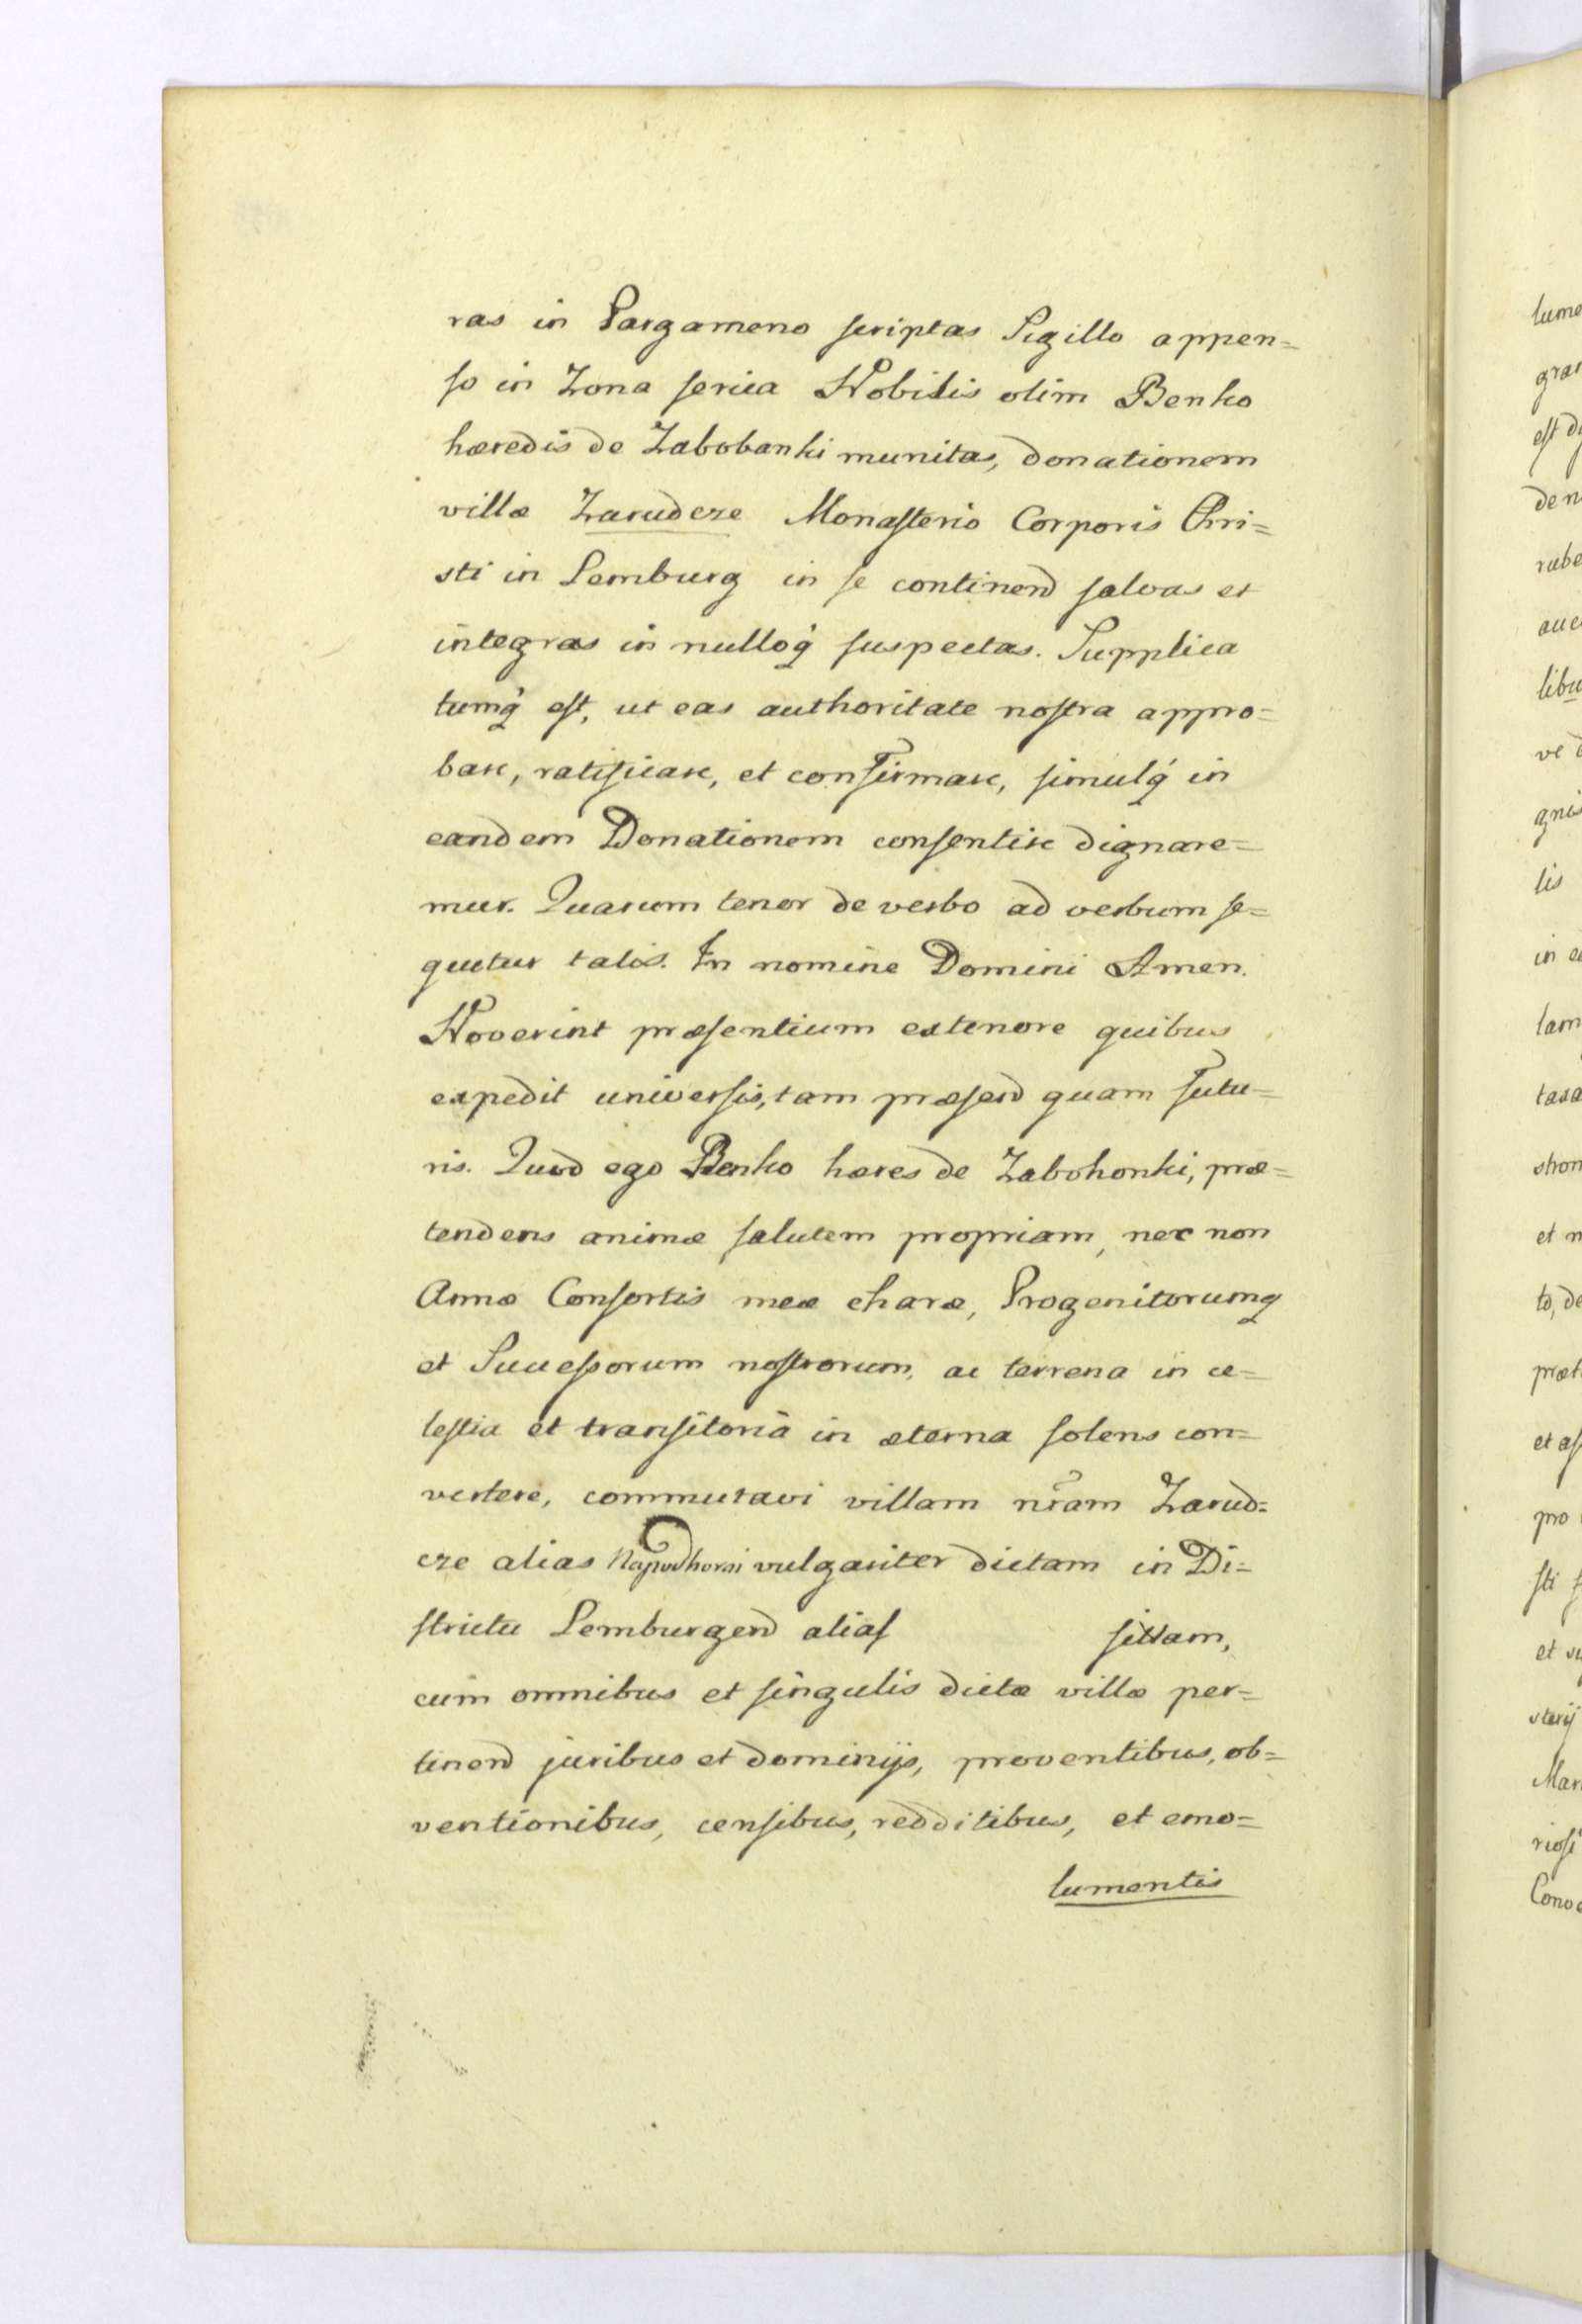 ras in Pargameno scriptas Sigillo appen=
so in Zona serica Nobilis olim Benko
hæredis de Zabobanki munitas, donationem
villæ Zarudcze Monasterio Corporis Chri=
sti in Lemburg in se continend salvas et
integras in nulloq́ suspectas. Supplica
tumq́ est, ut eas authoritate nostra appro=
bare, ratificare, et confirmare, simulq́ in
eandem Donationem consentire dignare=
mur. Quarum tenor de verbo ad verbum se=
quitur talis. In nomine Domini Amen.
Noverint præsentium extenore quibus
expedit universis, tam præsend quam futu=
ris. Quod ego Benko hæres de Zabohonki, præ=
tendens animæ salutem propriam, nec non
Annæ Consortis meæ charæ, Progenitorumq
et Successorum nostrorum, ac terrena in ce=
lestia et transitoria in æterna solens con=
vertere, commutavi villam nr̃am Zarud=
cze alias vulgariter dictam in Di=
strictu Lemburgend alias sittam,
cum omnibus et singulis dictæ villæ per=
tinend juribus et dominijs, proventibus, ob=
ventionibus, censibus, redditibus, et emo=
lumentis
lume
gra
est
den
rube
libu
gnis
lis
in
tam
taxa
et
to, de
præt
et
pro
sti
et
Mar